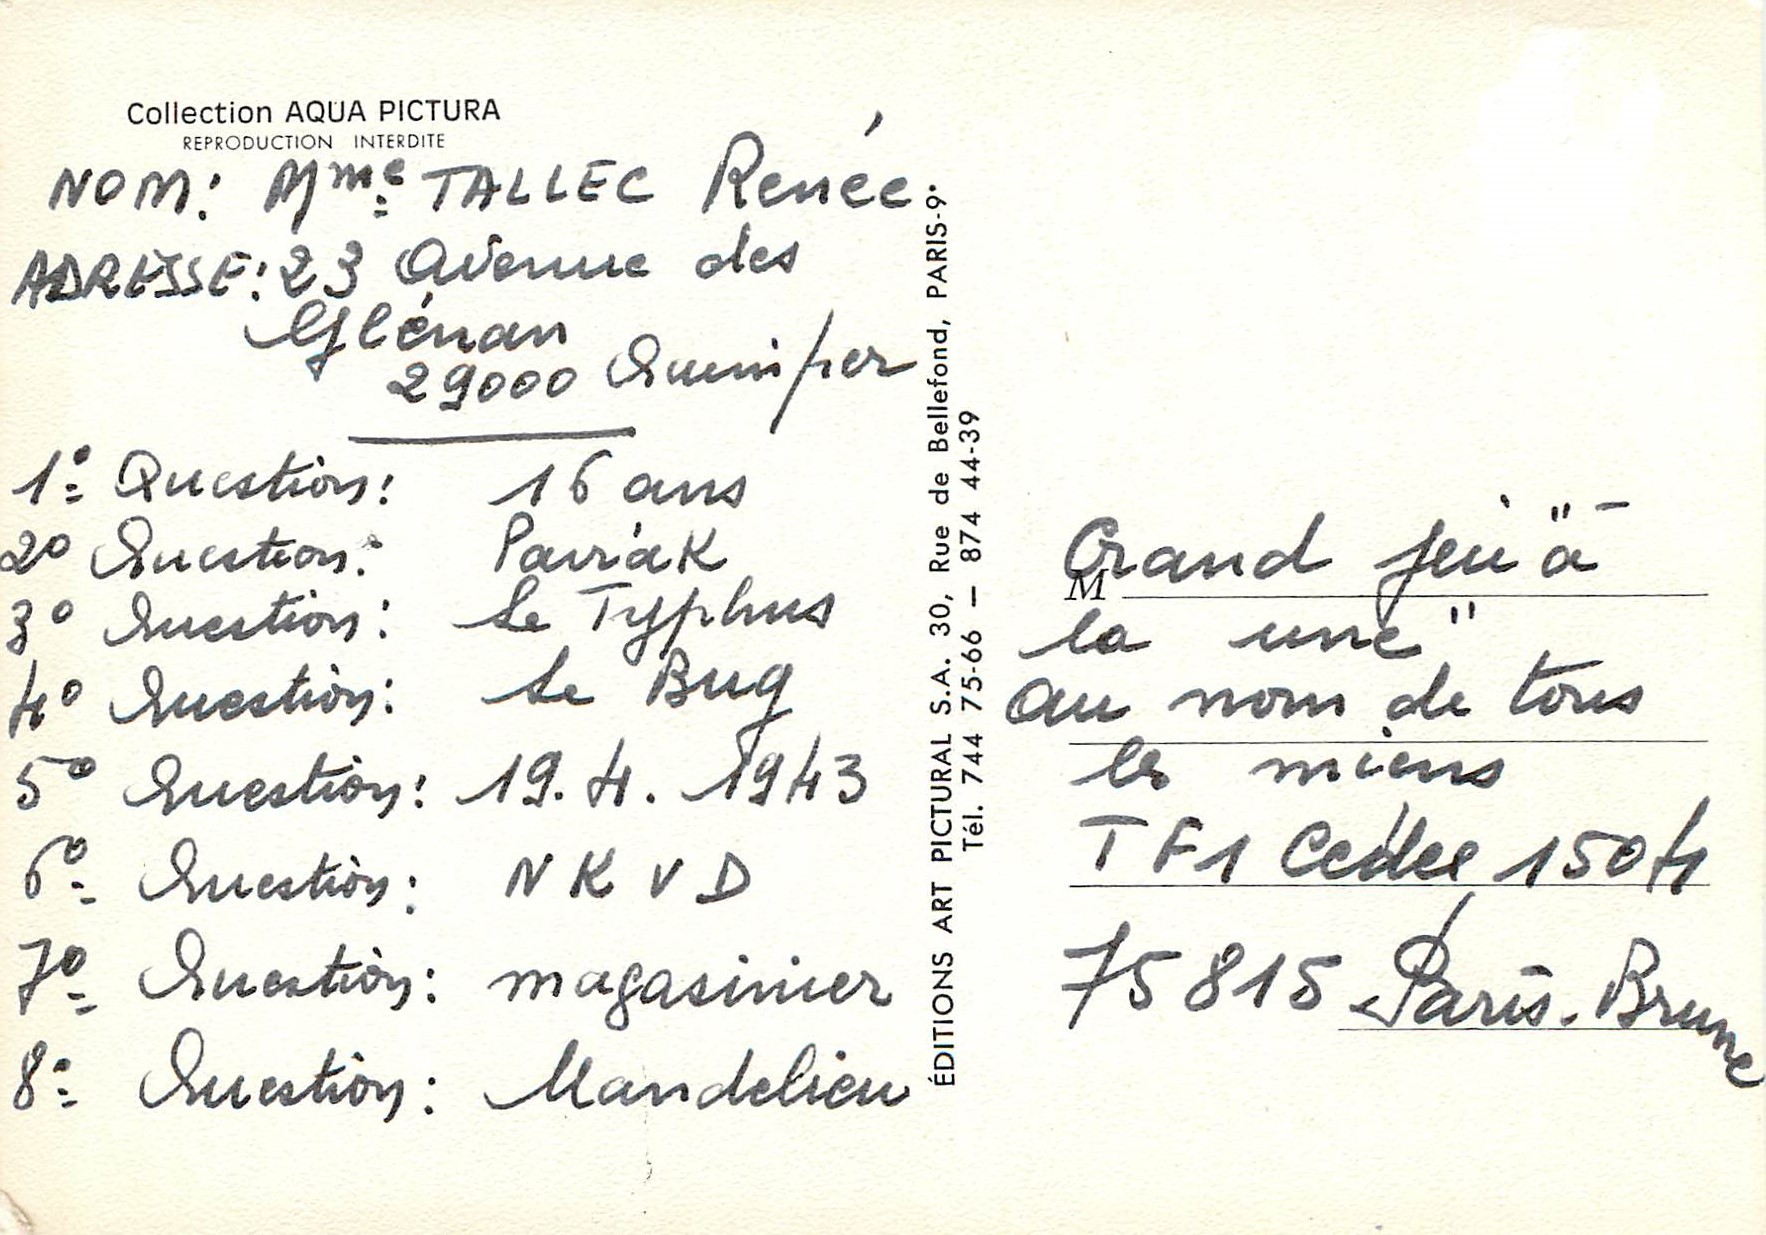 Collection AQUA PICTURA
REPRODUCTION INTERDITE
NOM: Mme TALLEC Renée
ADRESSE: 23 Avenue des
Glénan
29000 Quimper
1º Question: 16 ans
2º Question: Pawiak
3º Question: Le Typhus
4º Question: Le Bug
5º Question: 19.4.1943
6º Question: NKVD
7º Question: magasinier
8º Question: Mandelieu
ÉDITIONS ART PICTURAL S.A. 30, Rue de Bellefond, PARIS-9e
Tél. 744 75-66 — 874 44-39
M
Grand jeu "à
la une"
au nom de tous
les miens
TF1 Cedex 1504
75815 Paris-Brune